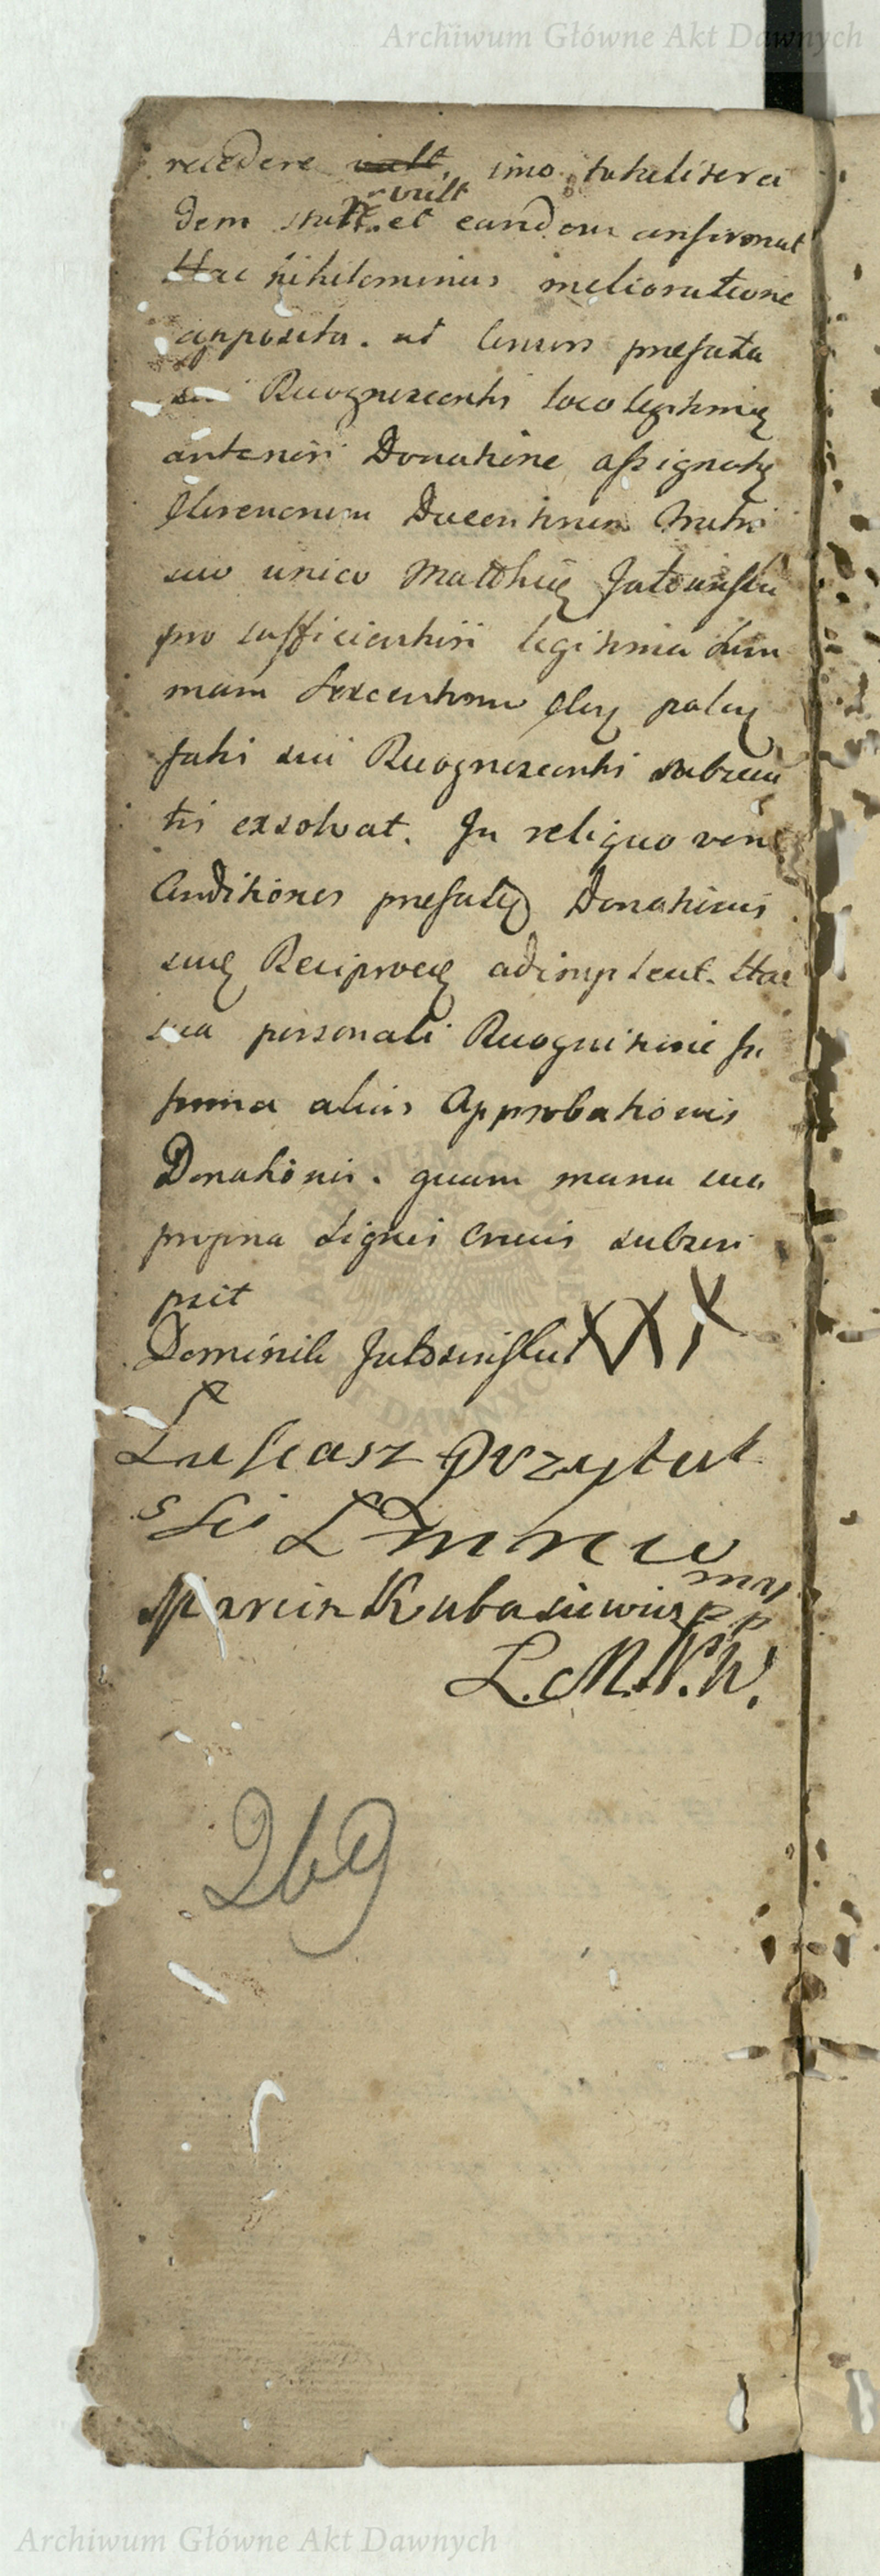 Archiwum Główne Akt Dawnych
recedere vult, imo totaliter ei
vult
dem stat et eandem confirmat
Hac nihilominus melioratione
apposita. ut Consors prefata
sui Recognoscentis loco legitimę
anterióri Donatione assignatę
florenorum Ducentorum fratri
suo unico Matthię
pro sufficientióri legitima Sum
mam Sexcentorum
fati sui Recognoscentis
tis exsolvat. In reliquo vero
Conditiones prefatę Donationis
suę Reciprocę adimpleat. Hac
sua personali Recognitione In
forma alias Approbationis
Donationis. quam manu sua
propria Signis Crucis subscri
psit
Dominik XXX
Łukasz Przytuł
ski Ł m n c w
mp
Marcin Kubasiewicz pp
L.M.N.W.
269
Archiwum Główne Akt Dawnych